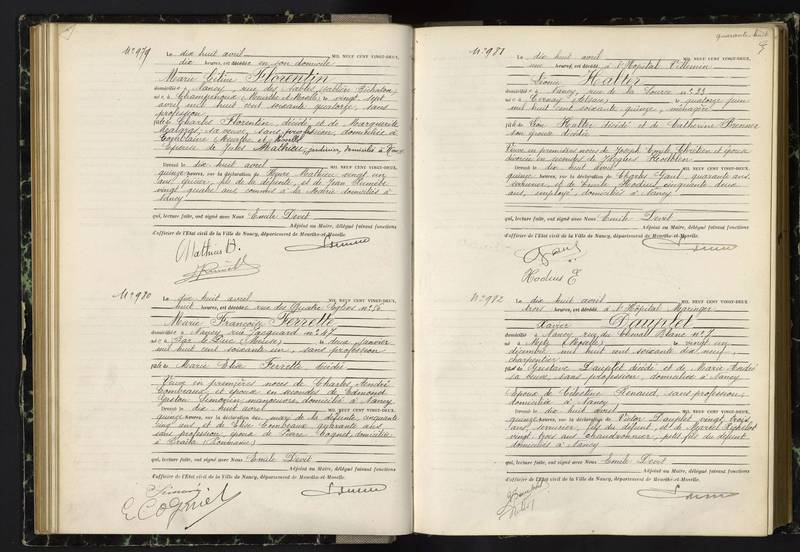 N° 979
Le dix huit avril MIL NEUF CENT VINGT-DEUX,
dix heures, est décédée en son domicile
Marie Célina Florentin
domiciliée à Nancy, rue des Sables,
née à Champenoux (Meurthe et Moselle) le vingt sept
avril mil huit cent soixante quatorze, sans
profession
fille de Charles Florentin, décédé, et de Marguerite
sa veuve, sans profession, domiciliée à
Meurthe et Moselle
Epouse de Jules Mathieu, jardinier, domicilié à Nancy
Dressé le dix huit avril MIL NEUF CENT VINGT-DEUX,
quinze heures, sur la déclaration de Henri Mathieu vingt un
ans, fils de la défunte, et de Jean
vingt quatre ans commis à la Mairie domiciliés à
Nancy
qui, lecture faite, ont signé avec Nous Emile Devit
Adjoint au Maire, délégué faisant fonctions
d'officier de l'Etat civil de la Ville de Nancy, département de Meurthe-et-Moselle.
Mathieu H.
N° 980
Le dix huit avril MIL NEUF CENT VINGT-DEUX,
huit heures, est décédée rue des Quatre Eglises n° 56
Marie Françoise Ferrette
domiciliée à Nancy rue Jacquard n° 47
née à Bar le Duc (Meuse) le deux janvier
mil huit cent soixante un, sans profession
fille de Marie Elise Ferrette décédée
Veuve en premières noces de Charles André
Combeaux, et épouse en secondes de Edmond
Gaston Simonin, manoeuvre, domicilié à Nancy
Dressé le dix huit avril MIL NEUF CENT VINGT-DEUX,
quinze heures, sur la déclaration du mary de la défunte, cinquante
cinq ans, et de Elise Combeaux quarante ans,
sans profession épouse de Pierre Cognet, domiciliée
à (Roumanie)
qui, lecture faite, ont signé avec Nous Emile Devit
Adjoint au Maire, délégué faisant fonctions
d'officier de l'Etat civil de la Ville de Nancy, département de Meurthe-et-Moselle.
Simonin
E Cognet
quarante huit
N° 981
Le dix huit avril MIL NEUF CENT VINGT-DEUX,
une heures, est décédée à l'Hopital Villemin
Léonie Halter
domiciliée à Nancy, rue de la Source n° 33
née à Cernay (Alsace) le quatorze juin
mil huit cent soixante quinze, ménagère
fille de Léon Halter décédé et de Catherine Brenner
son épouse décédée
Veuve en premières noces de Joseph Emile et épouse
divorcée en secondes de
Dressé le dix huit avril MIL NEUF CENT VINGT-DEUX,
quinze heures, sur la déclaration de Charles Paul, quarante ans,
et de Emile Hodius, cinquante deux
ans, employé domiciliés à Nancy
qui, lecture faite, ont signé avec Nous Emile Devit
Adjoint au Maire, délégué faisant fonctions
d'officier de l'Etat civil de la Ville de Nancy, département de Meurthe-et-Moselle.
Hodius E
N° 982
Le dix huit avril MIL NEUF CENT VINGT-DEUX,
trois heures, est décédé à l'Hôpital Maringer
Xavier Dauplet
domicilié à Nancy, rue du Cheval Blanc n° 7
né à Metz (Moselle) le vingt un
décembre mil huit cent soixante dix neuf,
charpentier
fils de Gustave Dauplet décédé et de Marie André
sa veuve, sans profession, domiciliée à Nancy
Epoux de Célestine Renaud, sans profession,
domiciliée à Nancy
Dressé le dix huit avril MIL NEUF CENT VINGT-DEUX,
quinze heures, sur la déclaration de Victor Dauplet vingt trois
ans, serrurier, fils du défunt, et de Marcel
vingt trois ans chaudronnier, petit fils du défunt
domiciliés à Nancy
qui, lecture faite, ont signé avec Nous Emile Devit
Adjoint au Maire, délégué faisant fonctions
d'officier de l'Etat civil de la Ville de Nancy, département de Meurthe-et-Moselle.